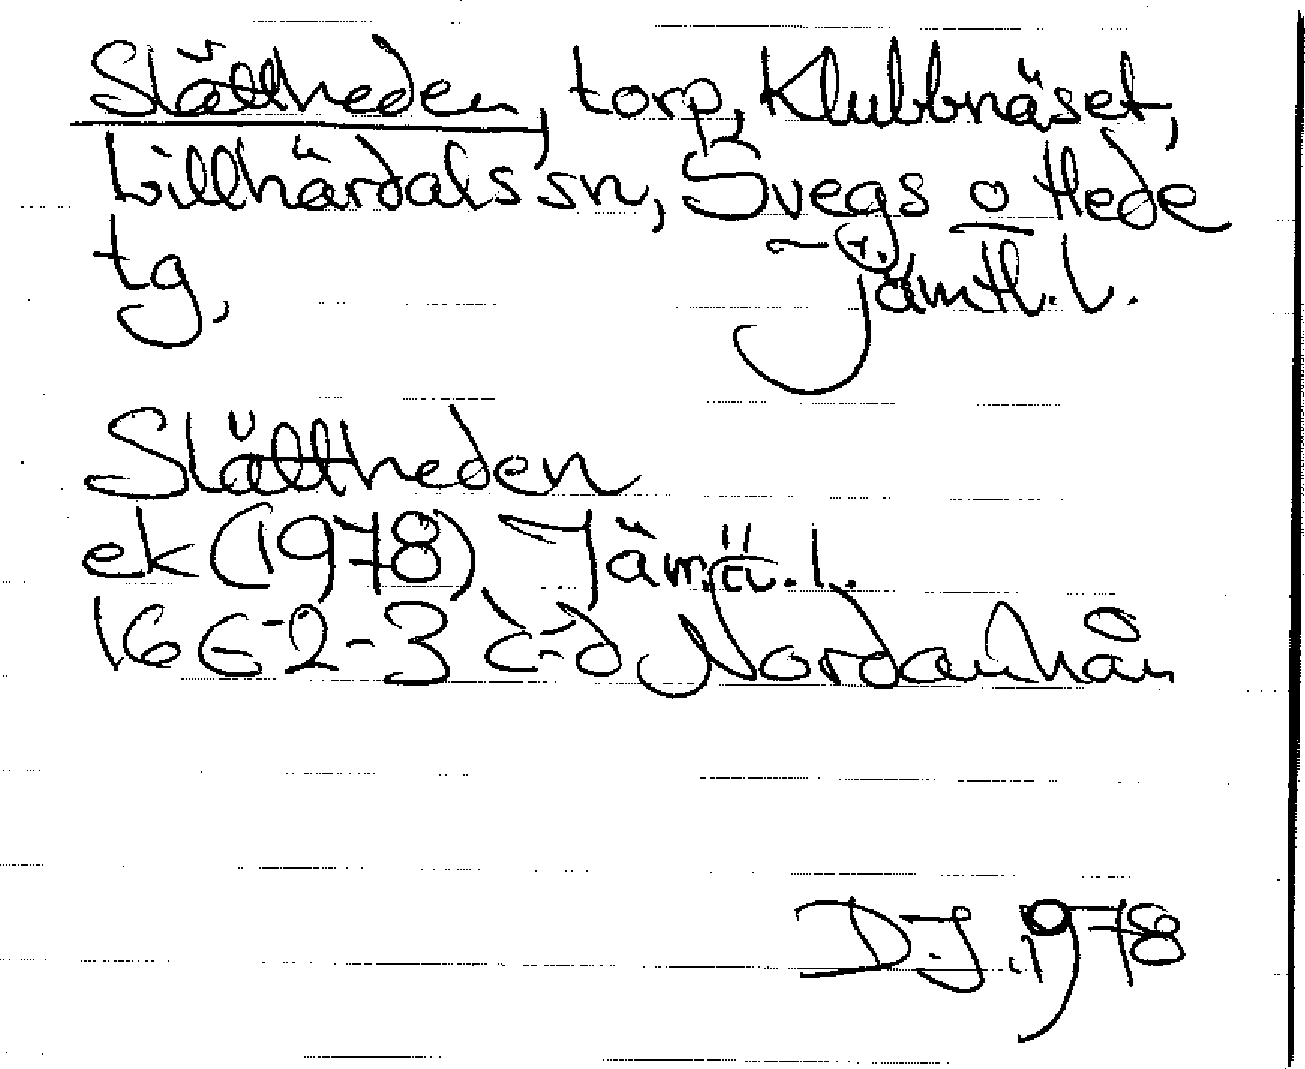 Slättheden, torp, Klubbnäset,
Lillhärdals sn, Svegs o Hede
tg, Jämtl. l.
Slättheden
ek (1978) Jämtl. l.
16 E-2-3 c-d Nordanhån
D.J. 1978